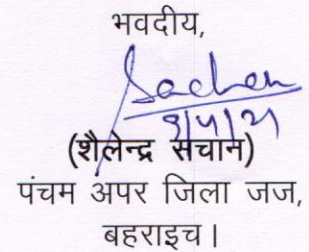 भवदीय,
Sachan
9/4/21
(शैलेन्द्र सचान)
पंचम अपर जिला जज,
बहराइच।